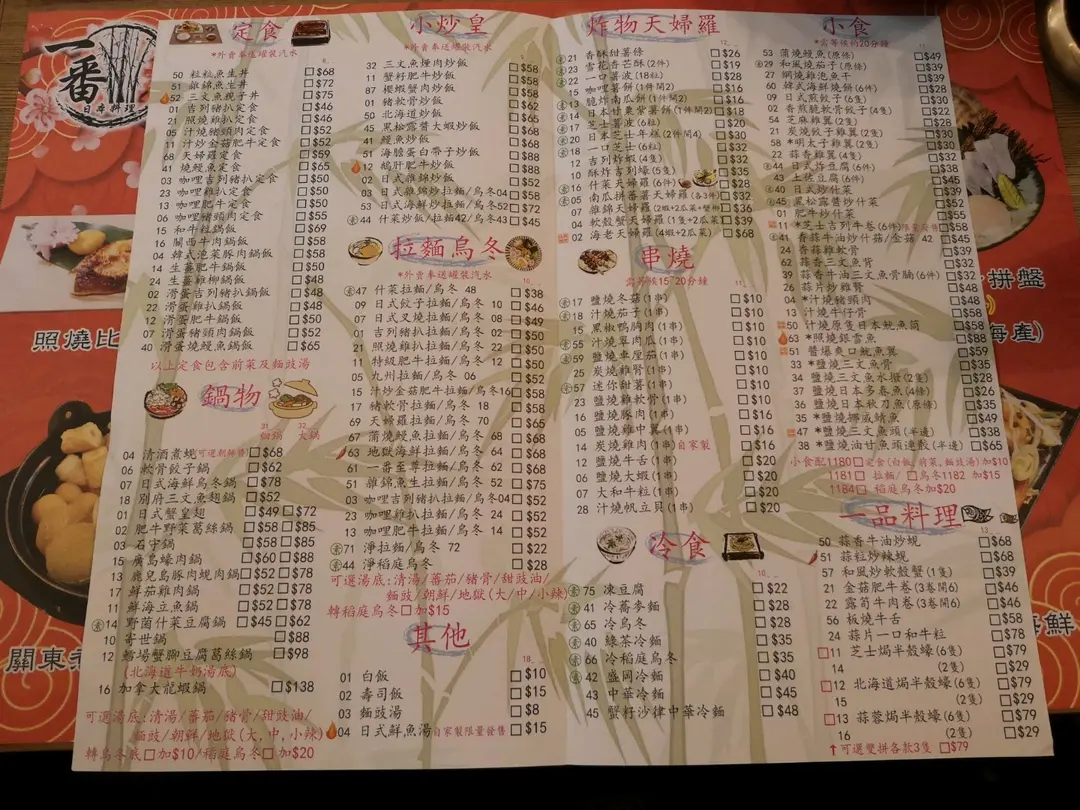 一番
日本料理
照燒比
關東煮
拼盤
海產)
海鮮
定食
*外賣奉送罐裝汽水
50 粒粒魚生丼 $68
51 雜錦魚生丼 $72
52 三文魚親子丼 $75
01 吉列豬扒定食 $46
21 照燒雞扒定食 $46
05 汁燒豬頸肉定食 $52
11 汁炒金菇肥牛定食 $52
68 天婦羅定食 $59
41 燒鰻魚定食 $65
03 咖哩吉列豬扒定食 $50
23 咖哩雞扒定食 $50
13 咖哩肥牛定食 $50
06 咖哩豬頸肉定食 $55
15 和牛粒鍋飯 $69
16 關西牛肉鍋飯 $68
04 韓式泡菜豚肉鍋飯 $58
14 生薑肥牛鍋飯 $50
24 生薑雞柳鍋飯 $50
02 滑蛋吉列豬扒鍋飯 $48
22 滑蛋雞扒鍋飯 $48
12 滑蛋肥牛鍋飯 $50
07 滑蛋豬頸肉鍋飯 $52
40 滑蛋燒鰻魚鍋飯 $65
以上定食包含前菜及麵豉湯
鍋物
細鍋 大鍋
04 清酒煮蜆 可選朝鮮醬 $68
06 軟骨餃子鍋 $62
07 日式海鮮烏冬鍋 $78
18 別府三文魚翅鍋 $52
01 日式蟹皇翅 $49 $72
02 肥牛野菜葛絲鍋 $58 $85
03 石守鍋 $58 $85
15 廣島蠔肉鍋 $60 $88
13 鹿兒島豚肉蜆肉鍋 $52 $78
17 鮮茄雞肉鍋 $52 $78
11 鮮海立魚鍋 $52 $78
14 野菌什菜豆腐鍋 $45 $62
10 寄世鍋 $88
12 鱈場蟹腳豆腐葛絲鍋 $98
(北海道牛奶湯底)
16 加拿大龍蝦鍋 $138
可選湯底:清湯/蕃茄/豬骨/甜豉油/
麵豉/朝鮮/地獄(大,中,小辣)
轉烏冬底 加$10/稻庭烏冬 加$20
小炒皇
*外賣奉送罐裝汽水
32 三文魚燻肉炒飯 $58
11 蟹籽肥牛炒飯 $58
87 櫻蝦蟹肉炒飯 $58
01 豬軟骨炒飯 $62
50 北海道炒飯 $65
45 黑松露醬大蝦炒飯 $68
41 鰻魚炒飯 $68
51 海膽蛋白帶子炒飯 $88
12 鵝肝肥牛炒飯 $88
02 日式雜錦炒飯 $52
03 日式雜錦炒拉麵/烏冬04 $58
53 日式海鮮炒拉麵/烏冬52 $72
44 什菜炒飯/拉麵42/烏冬43 $45
拉麵烏冬
*外賣奉送罐裝汽水
47 什菜拉麵/烏冬 48 $38
09 日式餃子拉麵/烏冬 10 $46
07 日式叉燒拉麵/烏冬 08 $49
01 吉列豬扒拉麵/烏冬 02 $50
21 照燒雞扒拉麵/烏冬 22 $50
11 特級肥牛拉麵/烏冬 12 $50
05 九州拉麵/烏冬 06 $52
15 汁炒金菇肥牛拉麵/烏冬16 $58
17 豬軟骨拉麵/烏冬 18 $58
69 天婦羅拉麵/烏冬 70 $65
67 蒲燒鰻魚拉麵/烏冬 68 $68
63 地獄海鮮拉麵/烏冬 64 $68
61 一番至尊拉麵/烏冬 62 $68
51 雜錦魚生拉麵/烏冬 52 $75
03 咖哩吉列豬扒拉麵/烏冬04 $52
23 咖哩雞扒拉麵/烏冬 24 $52
13 咖哩肥牛拉麵/烏冬 14 $52
71 淨拉麵/烏冬 72 $22
44 淨稻庭烏冬 $28
可選湯底:清湯/蕃茄/豬骨/甜豉油/
麵豉/朝鮮/地獄(大/中/小辣)
轉稻庭烏冬 加$15
其他
01 白飯 $10
02 壽司飯 $15
03 麵豉湯 $8
04 日式鮮魚湯 自家製限量發售 $15
炸物天婦羅
21 香酥甜薯條 $26
23 雪花香芒酥(2件) $19
22 一口薯波(18粒) $28
15 咖哩薯餅(1件開2) $16
13 脆炸南瓜餅(1件開2) $16
14 日本竹棗紫薯餅(1件開2) $18
17 芝士薯波(6粒) $20
20 日本芝士年糕(2件開4) $30
18 一口芝士(6粒) $32
12 吉列炸蝦(4隻) $32
10 酥炸吉列蠔(5隻) $35
16 什菜天婦羅(6件) $28
05 南瓜拼蕃薯天婦羅(各3件) $28
07 雜錦天婦羅(2蝦+2瓜+蟹柳) $36
04 軟殼蟹天婦羅(1隻+2瓜) $39
02 海老天婦羅(4蝦+2瓜) $68
串燒
需等候15-20分鐘
17 鹽燒冬菇(1串) $10
18 汁燒茄子(1串) $10
15 黑椒鴨胸肉(1串) $10
55 汁燒翠肉瓜(1串) $10
59 鹽燒車厘茄(1串) $10
25 炭燒雞腎(1串) $10
57 迷你甜薯(1串) $10
23 鹽燒雞軟骨(1串) $10
16 鹽燒豚肉(1串) $16
22 鹽燒雞中翼(1串) $14
14 炭燒雞肉(1串)自家製 $16
12 鹽燒牛舌(1串) $20
06 鹽燒大蝦(1串) $20
07 大和牛粒(1串) $20
28 汁燒帆立貝(1串) $20
冷食
75 凍豆腐 $22
41 冷蕎麥麵 $28
65 冷烏冬 $28
40 綠茶冷麵 $35
66 冷稻庭烏冬 $35
42 盛岡冷麵 $40
43 中華冷麵 $45
45 蟹籽沙律中華冷麵 $48
小食
*需等候約20分鐘
53 蒲燒鰻魚(原條) $49
29 和風燒茄子(原條) $39
27 網燒雞泡魚干 $39
60 韓式海鮮燒餅(6件) $28
09 日式煎餃子(6隻) $30
02 香煎髮軟骨餃子(4隻) $22
54 芝麻雞翼(2隻) $28
21 炭燒餃子雞翼(2隻) $30
58 *明太子雞翼(2隻) $30
22 蒜香雞翼(4隻) $32
44 日式炸豆腐(6件) $38
43 土佐豆腐(6件) $45
40 日式炒什菜 $39
45 黑松露醬炒什菜 $52
01 肥牛炒什菜 $55
11 *芝士吉列蠔(6件)限量發售 $58
41 香蒜牛油炒什菇/金菇 42 $45
24 香蒜雞軟骨 $39
62 蒜香三文魚背 $42
39 蒜香牛油三文魚骨腩(6件) $42
26 蒜片炒雞腎 $48
04 *汁燒豬頸肉 $48
13 汁燒牛仔骨 $58
50 汁燒原隻日本魷魚筒 $58
53 *照燒銀雪魚 $88
51 醬爆爽口魷魚翼 $59
33 *汁燒三文魚骨 $35
34 *鹽燒三文魚水撥(2隻) $28
37 鹽燒日本多春魚(4條) $26
36 鹽燒日本秋刀魚(原條) $35
35 *鹽燒挪威鯖魚 $49
47 *鹽燒三文魚頭(半邊) $38
38 *鹽燒油甘魚頭連鮫(半邊) $65
小食配1180 定食(白飯,前菜,麵豉湯)加$10
1181 拉麵/ 烏冬1182 加$15
1184 稻庭烏冬加$20
一品料理
50 蒜香牛油炒蜆 $68
51 蒜粒炒辣蜆 $68
57 和風炒軟殼蟹(1隻) $39
21 金菇肥牛卷(3卷開6) $46
22 露筍牛肉卷(3卷開6) $46
56 板燒牛舌 $58
24 蒜片一口和牛粒 $78
11 芝士焗半殼蠔(6隻) $79
14 (2隻) $29
12 北海道焗半殼蠔(6隻) $79
15 (2隻) $29
13 蒜蓉焗半殼蠔(6隻) $79
16 (2隻) $29
↑可選雙拼各款3隻 $79